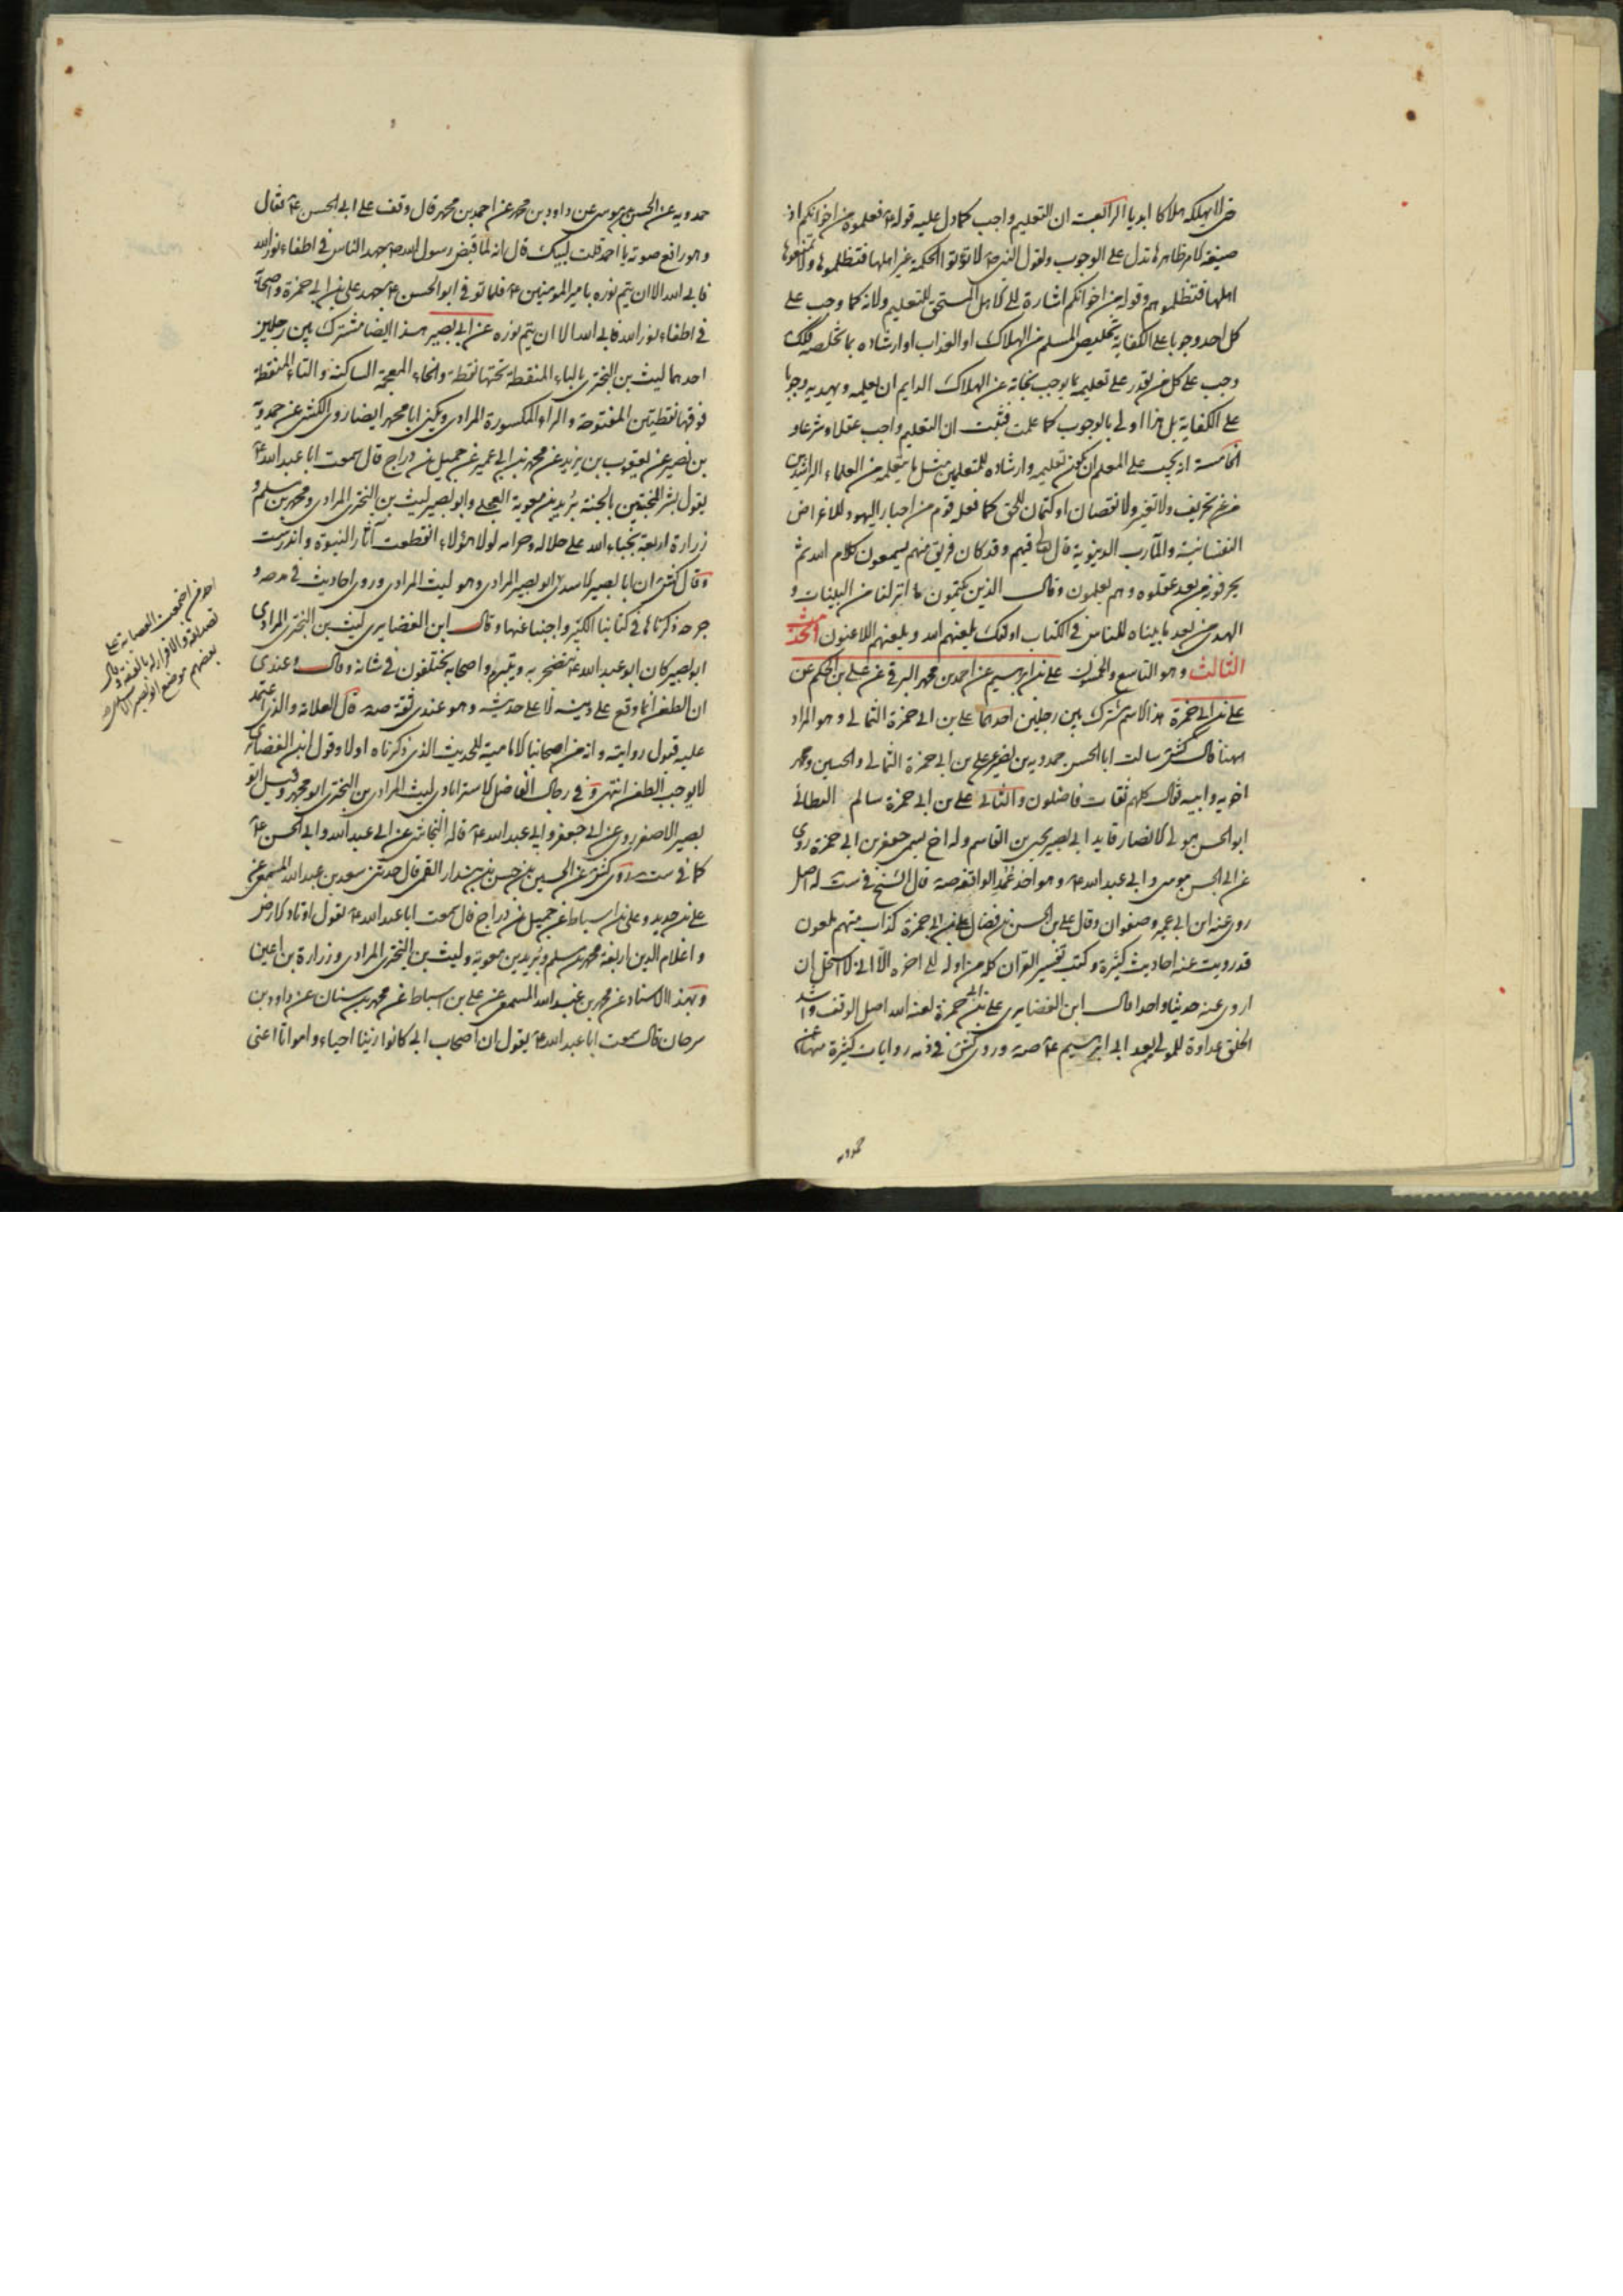 حتى لا يهلكه هلاكا ابديا الرابعة ان التعليم واجب كما دل عليه قوله ع فعلموه من اخوانكم اذ
صيغة الامر ظاهرها تدل على الوجوب ولقول النبي ص لا تؤتوا الحكمة غير اهلها فتظلموها ولا تمنعوها
اهلها فتظلموهم وقوله من اخوانكم اشارة الى الاهل المستحق للتعليم ولانه كما وجب على
كل احد وجوبا على الكفاية تخليص المسلم من الهلاك او العذاب او ارشاده بما تخلصه فكذلك
وجب على كل من يقدر على تعليمه بما يوجب نجاته عن الهلاك الدايم ان يعلمه ويهديه وجوبا
على الكفاية بل هذا اولى بالوجوب كما علمت فثبت ان التعليم واجب عقلا وشرعا و
الخامسة انه يجب على المعلم ان يكون تعليمه وارشاده للمتعلمين مثل ما يتعلمه من العلماء الراشدين
من غير تحريف ولا تغير ولا نقصان او كتمان للحق كما فعله قوم من احبار اليهود للاغراض
النفسانية والمآرب الدنيوية قال تعالى فيهم وقد كان فريق منهم يسمعون كلام الله ثم
يحرفونه من بعد عقلوه وهم يعلمون وقال الذين يكتمون ما انزلنا من البينات و
الهدى من بعد ما بيناه للناس في الكتاب اولئك يلعنهم الله ويلعنهم اللاعنون الحديث
الثالث وهو التاسع والخمسون علي بن ابرهيم عن احمد بن محمد البرقي عن علي بن الحكم عن
علي بن ابي حمزة هذا الاسم مشترك بين رجلين احدهما علي بن ابي حمزة الثمالي وهو المراد
ههنا قال كش سالت ابا الحسن حمدويه بن نصير عن علي بن ابي حمزة الثمالي والحسين ومحمد
اخويه وابيه فقال كلهم ثقات فاضلون والثاني علي بن ابي حمزة سالم البطائني
ابو الحسن مولى الانصار قايد ابي بصير يحيى بن القاسم وله اخ يسمى جعفر بن ابي حمزة روى
عن ابي الحسن موسى وابي عبد الله ع وهو احد عمد الواقفة صه قال الشيخ في ست له اصل
روى عنه ابن ابي عمير وصفوان وقال علي بن الحسن بن فضال علي بن ابي حمزة كذاب متهم ملعون
قد رويت عنه احاديث كثيرة وكتبت تفسير القران كله من اوله الى اخره الا اني لا استحل ان
اروي عنه حديثا واحدا قال ابن الغضايري علي بن ابي حمزة لعنه الله اصل الوقف واشد
الخلق عداوة للمولى بعد ابي ابرهيم ع صه وروى كش في ذمه روايات كثيرة منها عن
حمدويه
حمدويه عن الحسن بن موسى عن داود بن محمد عن احمد بن محمد قال وقف علي ابي الحسن ع فقال
وهو رافع صوته يا احمد قلت لبيك قال انه لما قبض رسول الله ص جهد الناس في اطفاء نور الله
فابى الله الا ان يتم نوره بامير المومنين ع فلما توفي ابو الحسن ع جهد علي بن ابي حمزة واصحابه
في اطفاء نور الله فابى الله الا ان يتم نوره عن ابي بصير هذا ايضا مشترك بين رجلين
احدهما ليث بن البختري بالباء المنقطة تحتها نقطة والخاء المعجمة الساكنة والتاء المنقطة
فوقها نقطتين المفتوحة والراء المكسورة المرادي ويكنى ابا محمد ايضا روى الكشي عن حمدويه
بن نصير عن يعقوب بن يزيد عن محمد بن ابي عمير عن جميل بن دراج قال سمعت ابا عبد الله ع
يقول بشر المخبتين بالجنة بريد بن معوية العجلي وابو بصير ليث بن البختري المرادي ومحمد بن مسلم و
زرارة اربعة نجباء الله على حلاله وحرامه لولا هؤلاء انقطعت آثار النبوة واندرست
وقال كش ان ابا بصير الاسدي ابو بصير المرادي وهو ليث المرادي وروى احاديث في مدحه و
جرحه ذكرناها في كتابنا الكبير واجبنا عنها وقال ابن الغضايري ليث بن البختري المرادي
ابو بصير كان ابو عبد الله ع يتضجر به ويتبرم واصحابه يختلفون في شانه وقال وعندي
ان الطعن انما وقع على دينه لا على حديثه وهو عندي ثقة صه قال العلامة والذي اعتمد
عليه قبول روايته وانه من اصحابنا الامامية للحديث الذي ذكرناه اولا وقول ابن الغضائري
لا يوجب الطعن انتهى وفي رجال الفاضل الاسترابادي ليث المرادي بن البختري ابو محمد وقيل ابو
بصير الاصغر روى عن ابي جعفر وابي عبد الله ع قاله النجاشي عن ابي عبد الله وابي الحسن ع
كما في ست وروى كش عن الحسين بن حسن بن بندار القمي قال حدثني سعد بن عبد الله المسمعي عن
علي بن حديد وعلي بن اسباط عن جميل بن دراج قال سمعت ابا عبد الله ع يقول اوتاد الارض
واعلام الدين اربعة محمد بن مسلم وبريد بن معوية وليث بن البختري المرادي وزرارة بن اعين
وبهذا الاسناد عن محمد بن عبد الله المسمعي عن علي بن اسباط عن محمد بن سنان عن داود بن
سرحان قال سمعت ابا عبد الله ع يقول ان اصحاب ابي كانوا زينا احياء وامواتا اعني
احد من اجمعت العصابة على
تصديقه والاقرار له بالفقه وقال
بعضهم موضع ابو بصير الاسدي